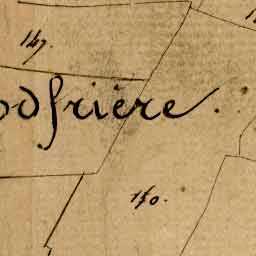 147
odfrière.
150.